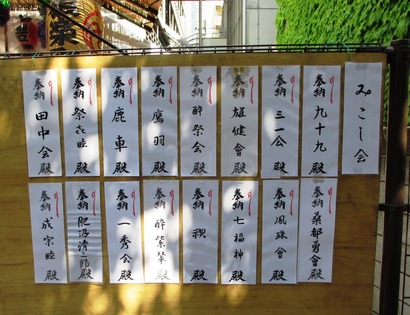 みこし会
奉納 九十九 殿
奉納 三一会 殿
奉納 雄健會 殿
奉納 酔祭会 殿
奉納 鷹羽 殿
奉納 鹿車 殿
奉納 祭㐂睦 殿
奉納 田中会 殿
奉納 桑都勇會 殿
奉納 風珠會 殿
奉納 七福神 殿
奉納 殿
奉納 酔紫華 殿
奉納 一秀会 殿
奉納 肥沼清三郎 殿
奉納 成宗睦 殿